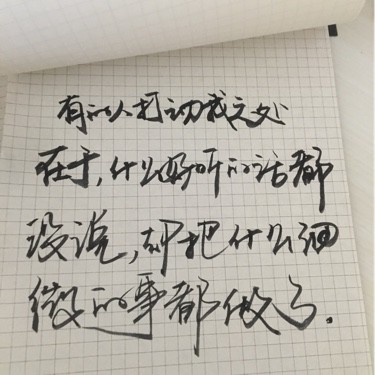 有的人打动我之处
在于,什么好听的话都
没说,却把什么细
微的事都做了.